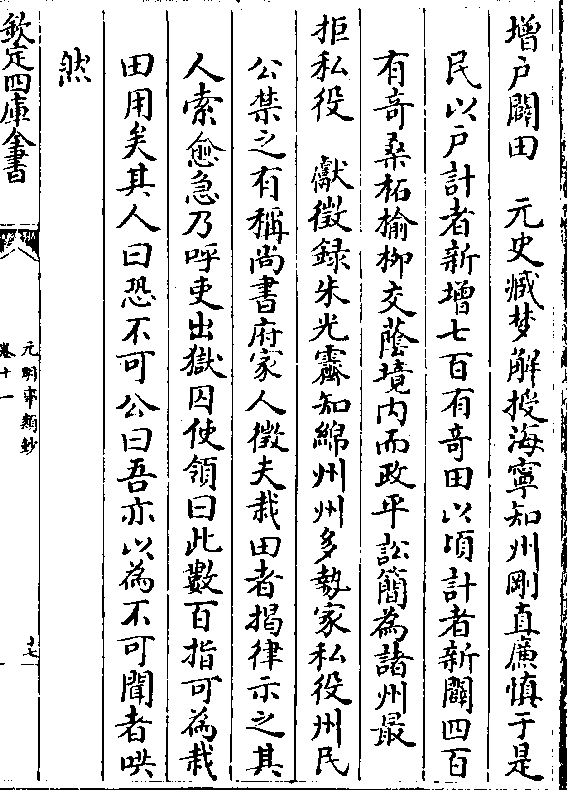 增戶闢田　元史臧梦解授海寧知州剛直廉慎于是
民以戶計者新增七百有竒田以頃計者新闢四百
有竒桑柘榆栁交蔭境内而政平訟簡為諸州最
拒私役　獻徵録朱光霽知綿州州多勢家私役州民
公禁之有稱尚書府家人徵夫栽田者揭律示之其
人索愈急乃呼吏出獄囚使領曰此數百指可為栽
田用矣其人曰恐不可公曰吾亦以為不可聞者哄
然
欽定四庫全書
元明事類鈔
卷十一